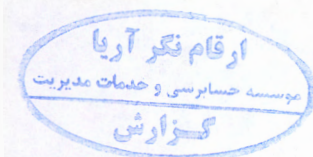 ارقام نگر آریا
موسسه حسابرسی و خدمات مدیریت
گزارش